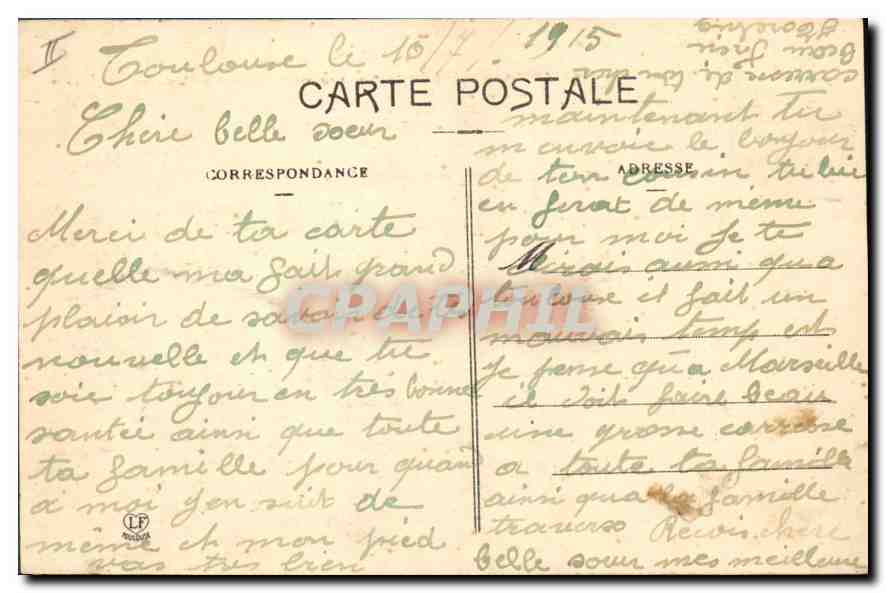 II
Toulouse le 16/7/1915
CARTE POSTALE
Chère belle soeur
CORRESPONDANCE
Merci de ta carte
quelle ma fait grand
plaisir de savoir de tes
nouvelle et que tu
soie toujour en très bonne
santée ainsi que toute
ta famille pour quand
a moi j'en suit de
même et mon pied
vas très bien
LF
TOULOUSE
maintenant tu
m envoie le bonjour
ADRESSE
de ton cousin tu lui
en ferat de même
pour moi Je te
dirais aussi qu a
toulouse il fait un
mauvais temp est
Je pense qu'a Marseille
il doit faire beau
une grosse caresse
a toute ta famille
ainsi qu a la famille
traverso Recois chere
belle soeur mes meilleure
caresse de ton
beau frere
CPARPHIL